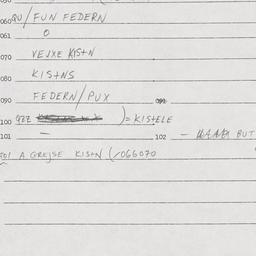 060 QU/FUN FEDERN
061 O
070 VEJXE KISTN
080 KISTNS
090 FEDERN/PUX 091
100 )= KISTELE
101 — 102 — BUT
A GREJSE KISTN (/066070